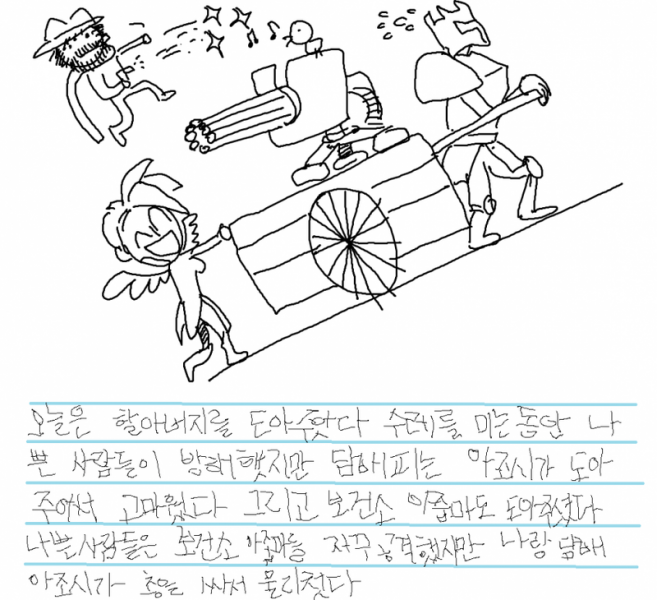 오늘은 할아버지를 도아주핫다 수레를 미는동안 나
쁜 사람들이 방해햇지만 담배피는 아죠시가 도아
주어서 고마웠다 그리고 보건소 아줌마도 도아주셨다
나쁜사람들은 보건소 아줌마를 자꾸 공격했지만 나랑 담배
아죠시가 총을 쏴서 물리첫다